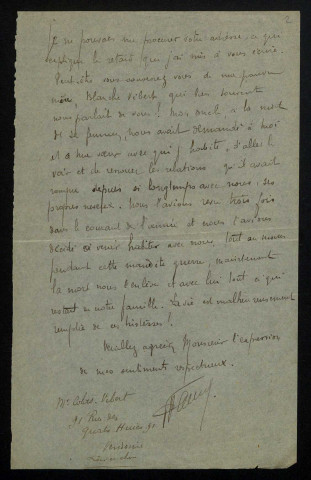 2
je ne pouvais me procurer votre adresse, ce qui
explique le retard que j'ai mis à vous écrire.
Peut-être vous souvenez vous de ma pauvre
mère, Blanche Vibert qui bien souvent
nous parlait de vous! Mon oncle, à la mort
de sa femme, nous avait demandé à moi
et à ma sœur avec qui j'habite, d'aller le
voir et de renouer les relations qu'il avait
rompu depuis si longtemps avec nous, ses
propres neveux. Nous l'avions revu trois fois
dans le courant de l'année et nous l'avions
décidé à venir habiter avec nous, tout au moins
pendant cette maudite guerre, maintenant
la mort nous l'enlève et avec lui tout ce qui
restait de notre famille. La vie est malheureusement
remplie de ces histoires!
Veuillez agréer, Monsieur l'expression
de mes sentiments respectueux.
Mr Vibert
91 Rue des
Bordeaux
Gironde